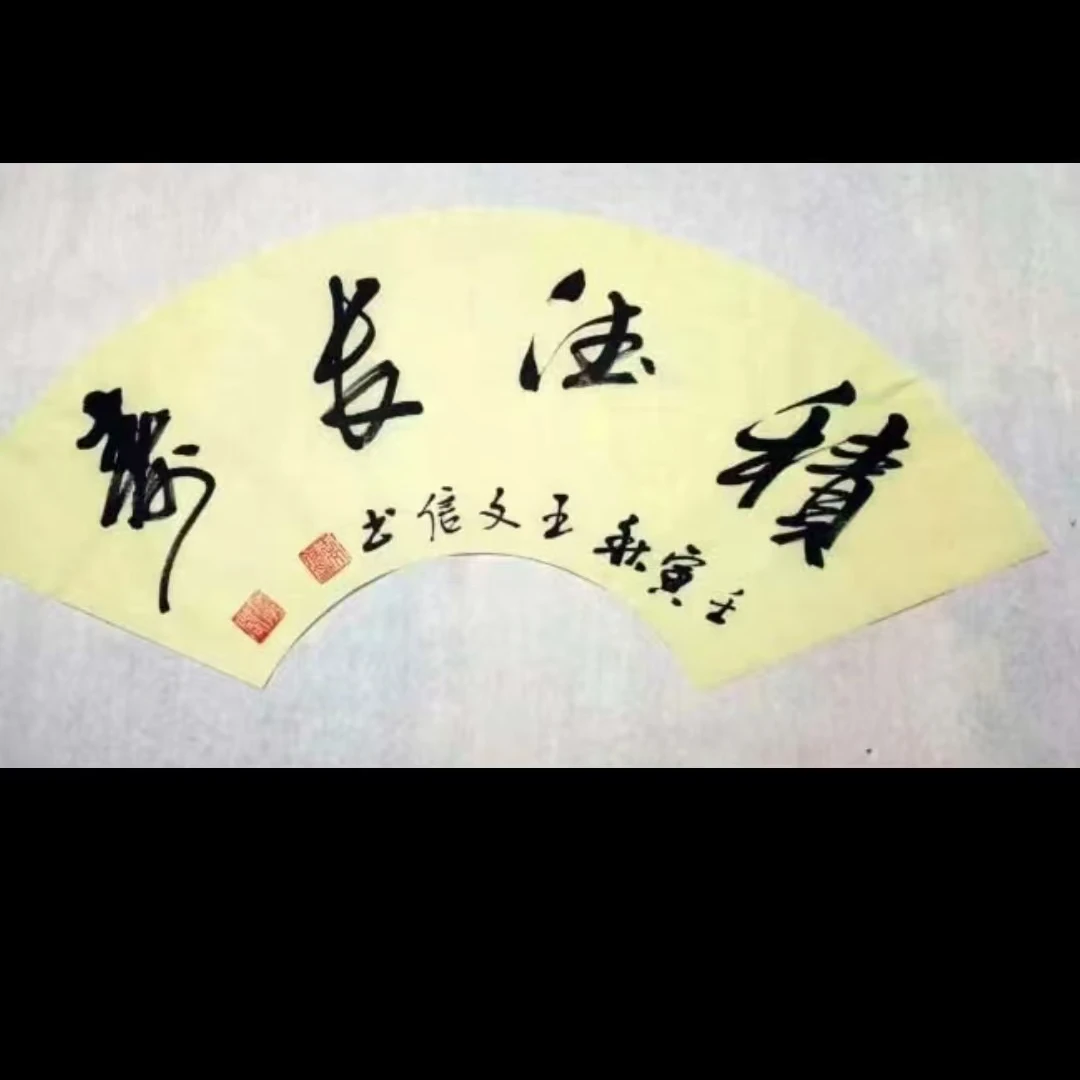 積德長壽
壬寅秋王文信书